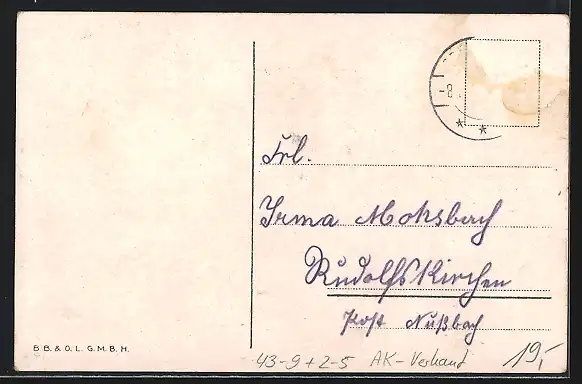 -8.
* *
Frl.
Irma Moksbach
Rudolfskirchen
Post Nußbach
B.B. & O.L. G.M.B.H.
43-9+2-5 AK-Verband 19,-